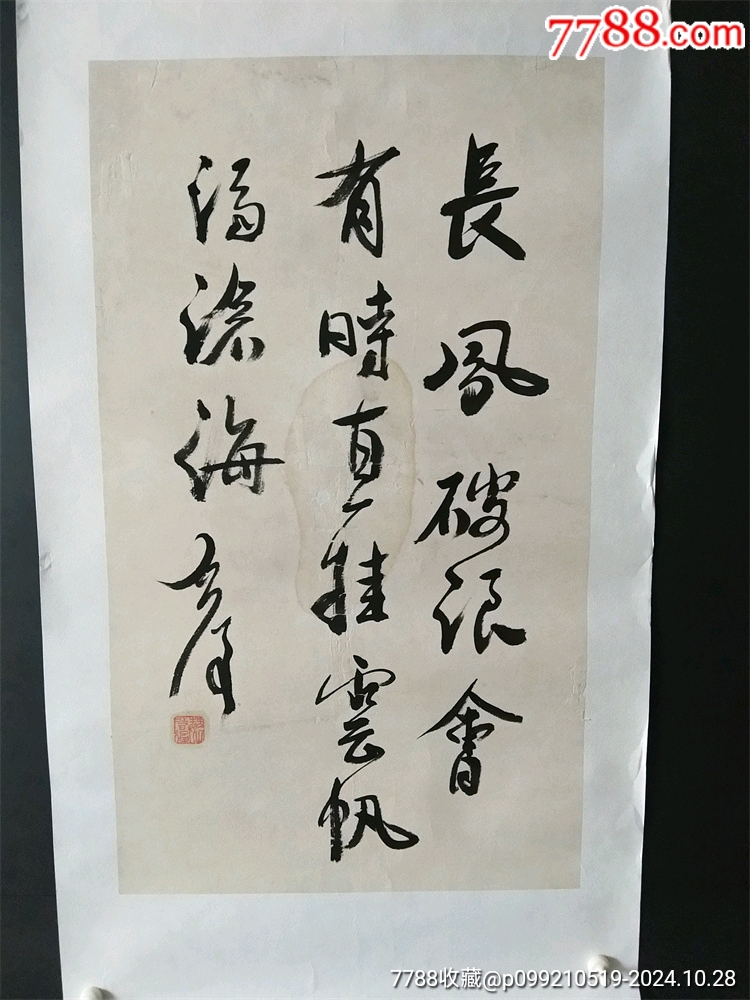 7788.com
長風破浪會
有時直挂雲帆
濟滄海
7788收藏@p099210519-2024.10.28